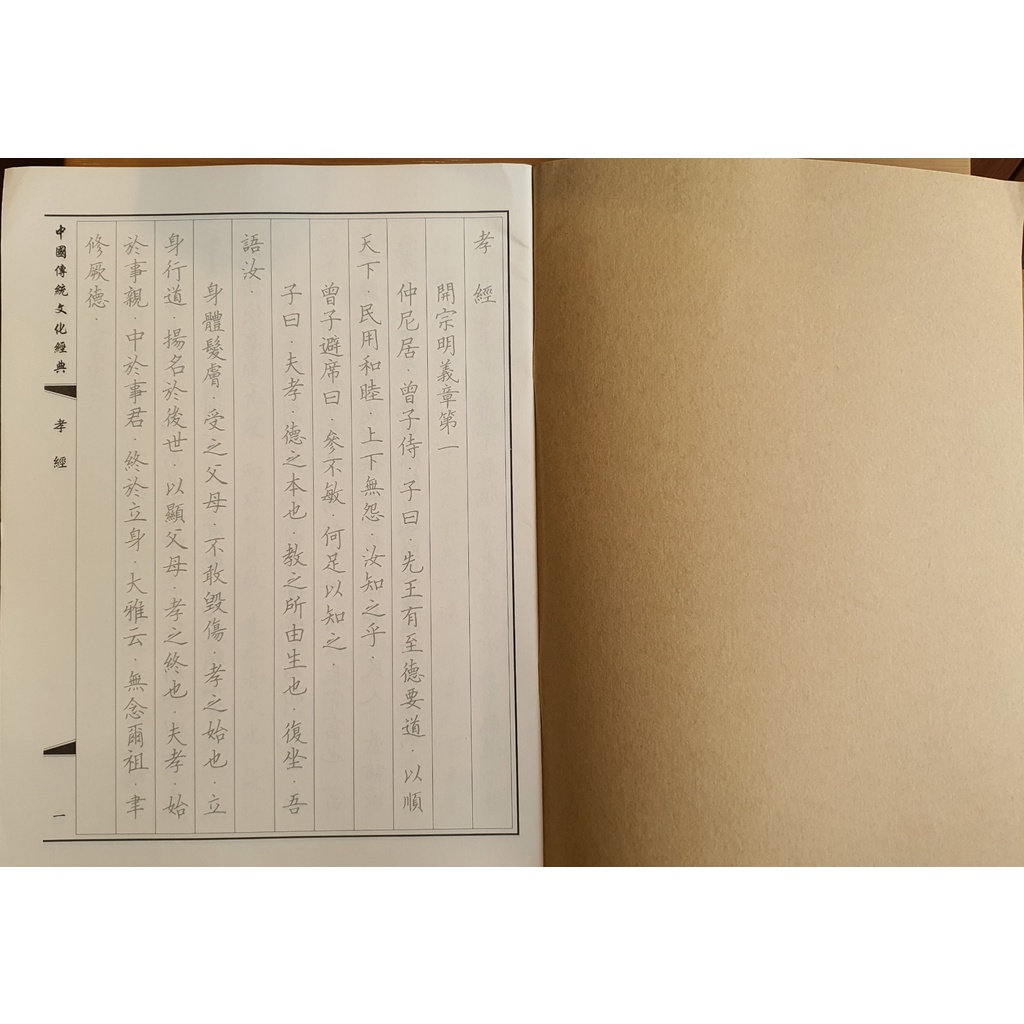 孝經
開宗明義章第一
仲尼居．曾子侍．子曰．先王有至德要道．以順
天下．民用和睦．上下無怨．汝知之乎．
曾子避席曰．參不敏．何足以知之．
子曰．夫孝．德之本也．教之所由生也．復坐．吾
語汝．
身體髮膚．受之父母．不敢毀傷．孝之始也．立
身行道．揚名於後世．以顯父母．孝之終也．夫孝．始
於事親．中於事君．終於立身．大雅云．無念爾祖．聿
修厥德．
中國傳統文化經典
孝經
一